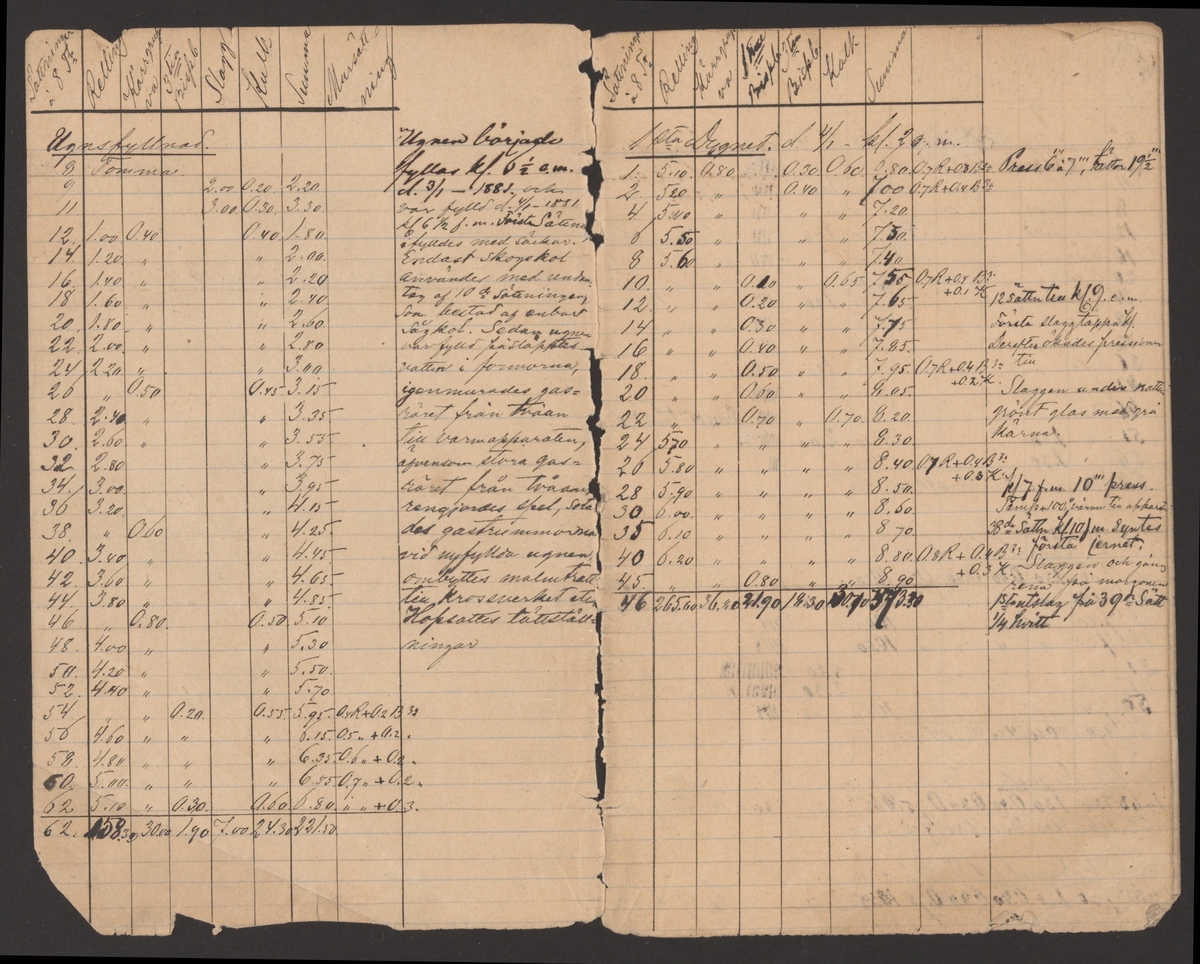 Sättningar à 8 Tr Relling Kärrgrufva 3 Tun Bispb. Slagg Kalk Summa Mursättning
Ugnsfyllnad.
8 Tomma
9 2.00 0.20 2.20
11 3.00 0.30 3.30
12 1.00 0.40 0.40 1.80
14 1.20 " " 2.00
16 1.40 " " 2.20
18 1.60 " " 2.40
20 1.80 " " 2.60
22 2.00 " " 2.80
24 2.20 " " 3.00
26 " 0.50 0.45 3.15
28 2.40 " 3.35
30 2.60 " 3.55
32 2.80 " 3.75
34 3.00 " 3.95
36 3.20 " 4.15
38 " 0.60 " 4.25
40 3.40 " " 4.45
42 3.60 " " 4.65
44 3.80 " " 4.85
46 " 0.80 0.50 5.10
48 4.00 " " 5.30
50 4.20 " " 5.50
52 4.40 " " 5.70
54 " " 0.20 0.55 5.95 0.4R+0.2B
56 4.60 " " " 6.15 0.5 " +0.2 "
58 4.80 " " " 6.35 0.6 " +0.2 "
60 5.00 " " " 6.55 0.7 " +0.2 "
62 5.10 " 0.30 0.60 6.80 " " +0.3
62. 158.30 30.00 1.90 7.00 24.30 221.50
Ugnen började
fyllas kl. 6 ½ e.m.
d. 3/1 – 1881 och
var fylld d. 4/1 – 1881
kl 6 ½ f.m. Första Sättn
ifylldes med säckar.
Endast skogskol
användes med undan-
tag af 10de Sättningen,
som bestod af enbart
Sågkol. Sedan ugnen
var fylld påsläpptes
vatten i formorna,
igenmurades gas-
röret från tvåan
till varmapparaten,
äfvensom stora gas-
röret från tvåan,
rengjordes spel,
des gastrummorna
vid nyfyllda ugnen,
ombyttes malmtratt
till krossverket etc.
Hopsattes tättställ-
ningar
Sättningar à 8 Tr Relling Kärrgrufva 1 Tun Bispb. 3 Tun Bispb. Kalk Summa
1sta Dygnet. d. 4/1 – kl. 2 e.m.
1. 5.10 0.80 0.30 0.60 6.80 0.7R+0.3B Press 6''' à 7''', 19½'''
2. 5.20 " 0.40 " 7.00 0.7R+0.4B
4 5.40 " " " 7.20
6 5.50 " " " 7.30
8 5.60 " " " 7.40
10 " " 0.10 " 0.65 7.55 0.7R+0.4B +0.1K
12 " " 0.20 " " 7.65
14 " " 0.30 " " 7.75
16 " " 0.40 " " 7.85
18 " " 0.50 " " 7.95 0.7R+0.4B +0.2K
20 " " 0.60 " " 8.05
22 " " 0.70 " 0.70 8.20
24 5.70 " " " " 8.30
26 5.80 " " " " 8.40 0.7R+0.4B +0.3K
28 5.90 " " " " 8.50
30 6.00 " " " " 8.60
35 6.10 " " " " 8.70
40 6.20 " " " " 8.80 0.8R+0.4B +0.3K
45 " " 0.80 " " 8.90
46 265.60 36.80 21.90 18.30 30.70 373.30
12 Sättn till kl. 9 e.m.
Första slaggtappn kl.
Derefter ökades pressionen
till
Slaggen under natten
grönt glas med grå
kärna.
kl 7 f.m. 10''' press.
Temp +100° värme till apparat
38de Sättn kl. 10 f.m. syntes
första jernet.
Slaggen och gång
ren från morgonen
1sta utslag på 39de Sätt
¼ hvitt